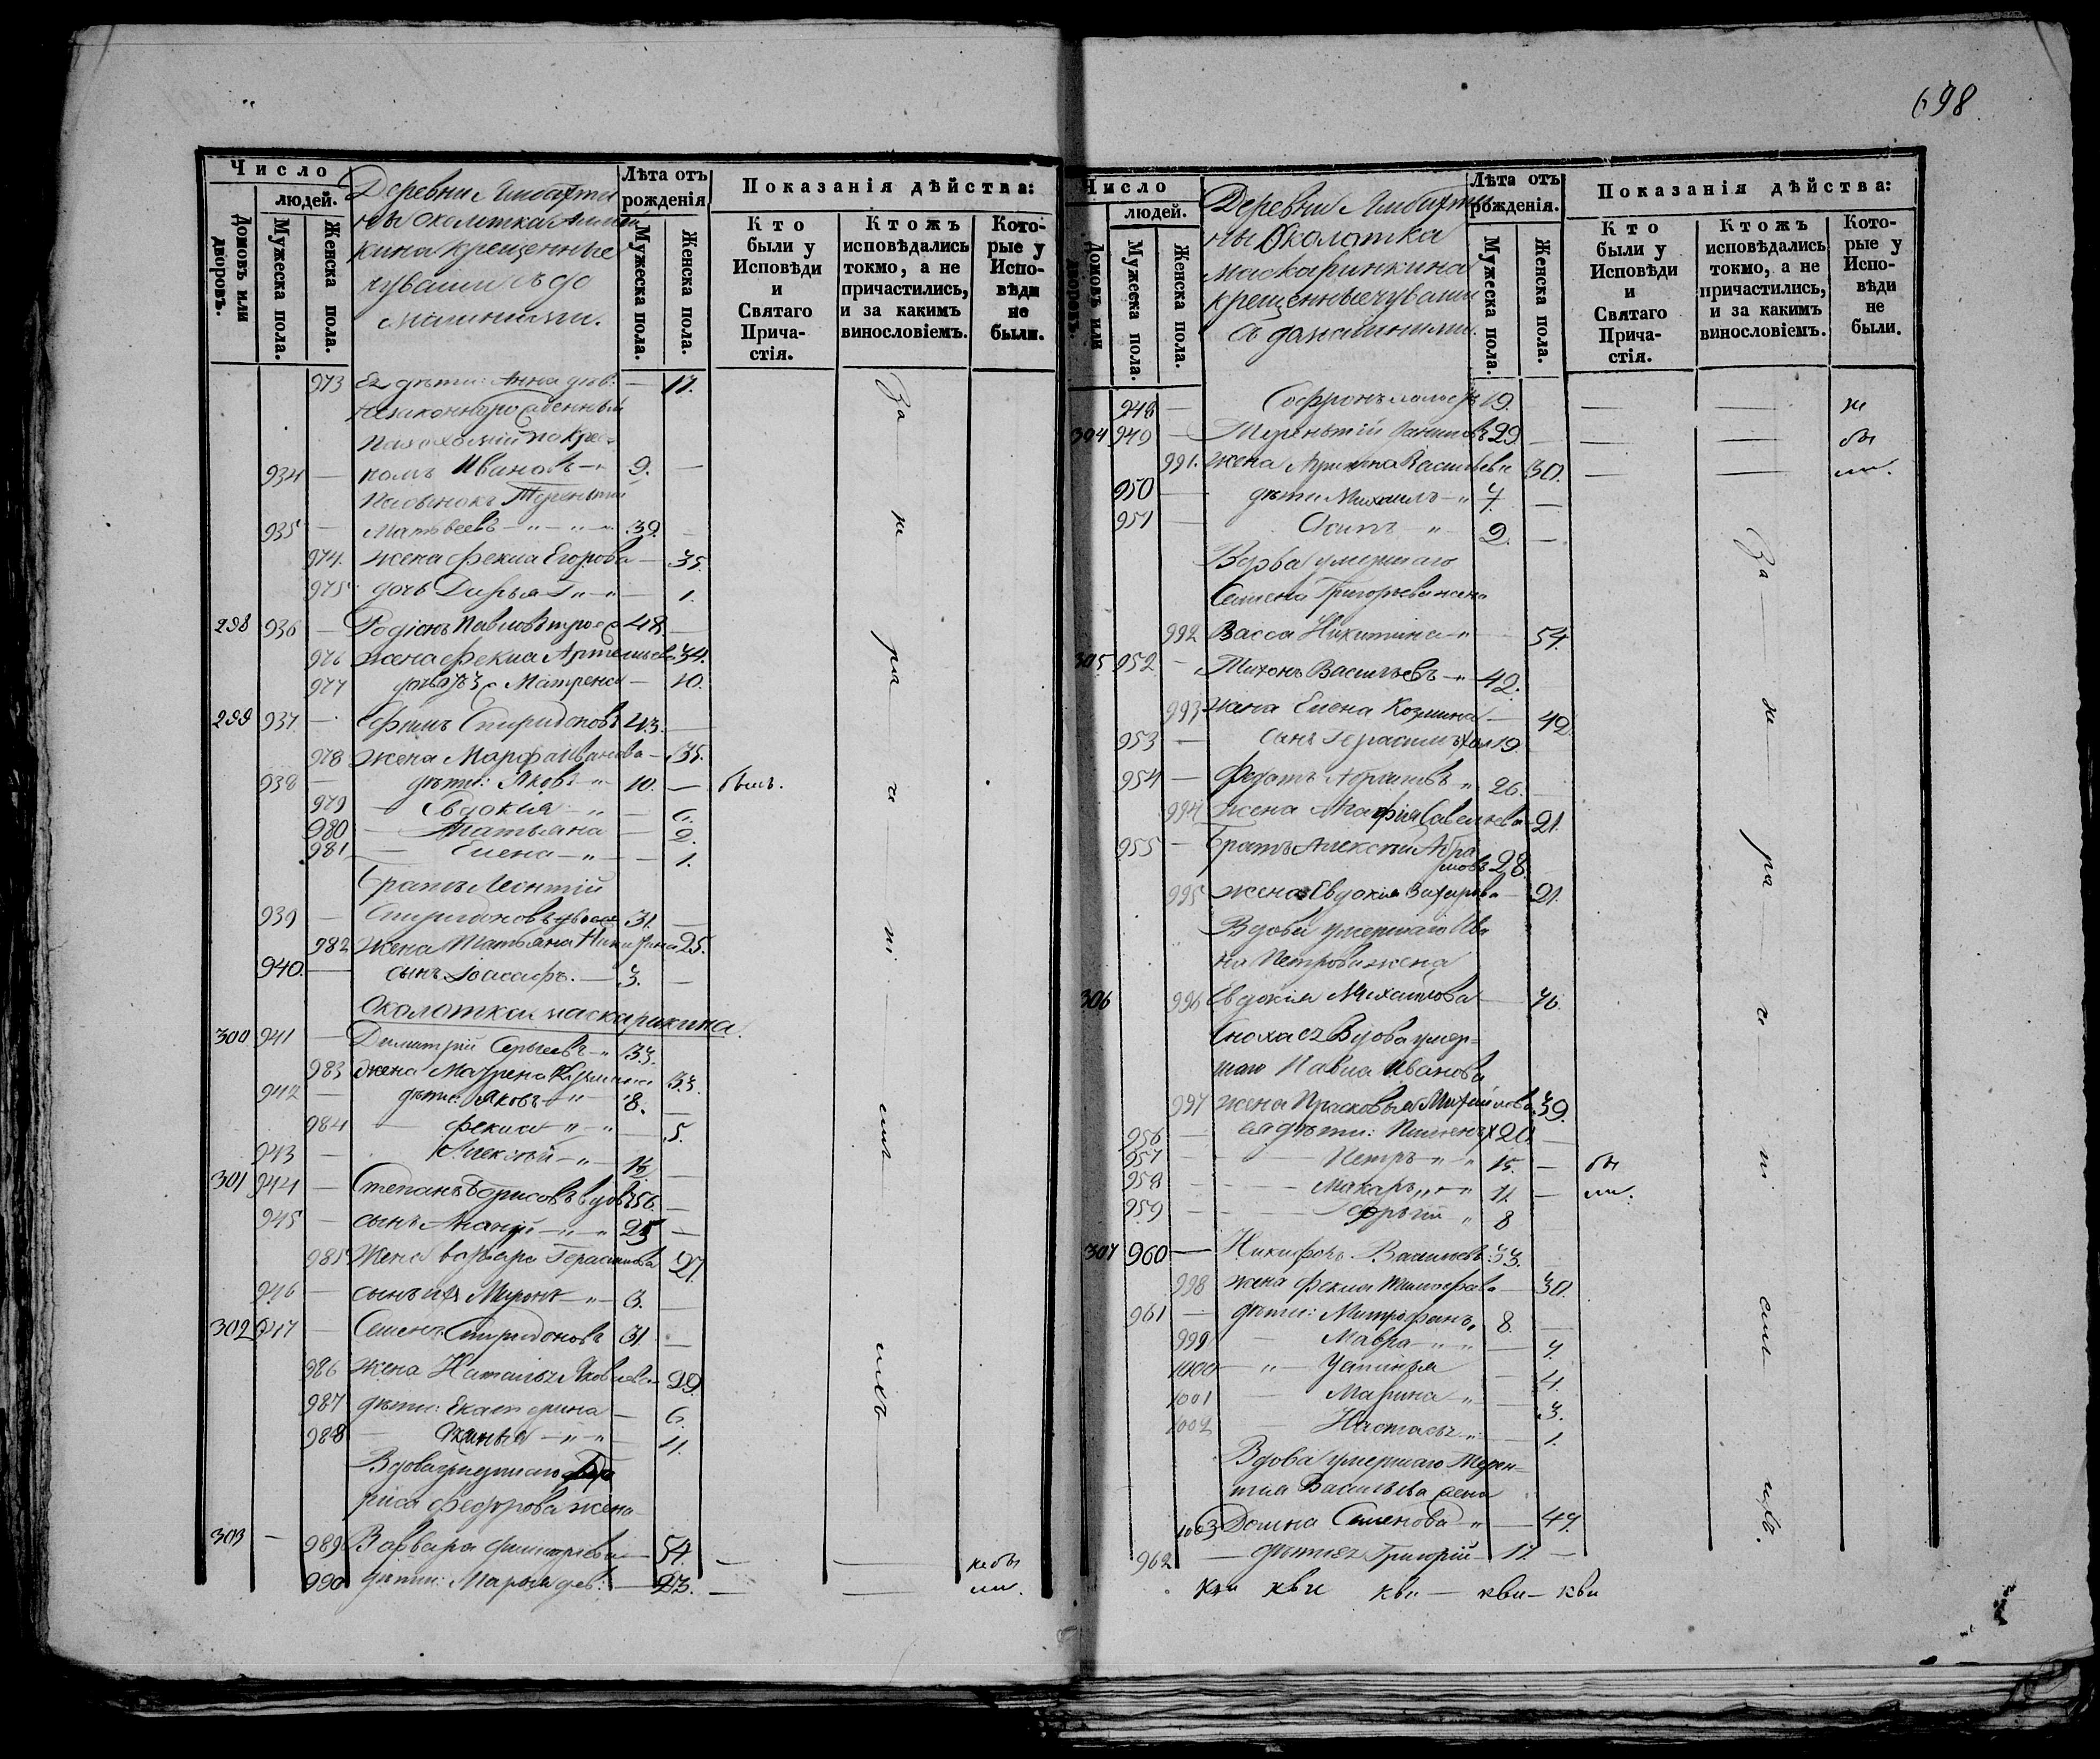 698
Число
людей.
Домовъ или дворовъ.
Мужеска пола.
Женска пола.
Деревни
ны околотка
кина крещенные
чуваши съ до
машними.
Лѣта отъ рожденія.
Мужеска пола.
Женска пола.
Показанія дѣйства:
Кто были у Исповѣди и Святаго Прича-стія.
Ктожъ исповѣдались токмо, а не причастились, и за какимъ винословіемъ.
Кото-рые у Испо-вѣди не были.
973 Ея дѣти: Анна дѣв. — 17.
незаконнорожденный
934 — Ивановъ — 9. —
Пасынокъ Терентій
935 — Матвеевъ — 39. —
974. жена Фекла Егорова — 35.
975 дочь Дарья — 1.
298 936 — Родіонъ Павловъ 48. —
976 жена Фекла 34.
977 Матрена — 10.
299 937. — Ефимъ Спиридоновъ 43. —
978 жена Марфа Иванова — 35.
938 — дѣти: Яковъ 10. — былъ.
979 — Евдокія — 6.
980 — Татьяна — 2.
981 — Елена — 1.
Братъ Леонтій
939 — Спиридоновъ 31. —
982 жена Татьяна 25.
940. — сынъ Іоасафъ. — 3. —
Околотка маскарикина.
300 941 — Димитрій Сергеевъ 33.
983 жена Матрена 33.
942 — дѣти: Яковъ 8. —
984 — Фекла — 5.
943 — Алексѣй —
301 944 — Степанъ Борисовъ вдовъ 56. —
945 — сынъ 25 —
985 жена варвара Герасимова 27
946 — сынъ Миронъ — 3. —
302 947 — Семенъ Спиридоновъ 31. —
986 жена Наталья Яковлева 29.
987 дѣти: Екатерина — 6.
988 — 11.
Вдова умершаго
риса Федорова жена
303 — 989 Варвара — 54. — —
990 дѣти: Марья дѣв: — 23. — —
не бы
ли.
За не ра че ні ем ихъ
Число
людей.
Домовъ или дворовъ.
Мужеска пола.
Женска пола.
Деревни
ны Околотка
маскаринкина
крещенные чуваши
съ домашними.
Лѣта отъ рожденія.
Мужеска пола.
Женска пола.
Показанія дѣйства:
Кто были у Исповѣди и Святаго Прича-стія.
Ктожъ исповѣдались токмо, а не причастились, и за какимъ винословіемъ.
Кото-рые у Испо-вѣди не были.
948 — Софронъ 19. — — не
304 949 — Терентій 29. — — — бы
991. жена Васильева 30. — — ли.
950 — дѣти Михаилъ 7. —
951 Осипъ 2. —
Вдова умершаго
Семена Григорьева жена
992 Васса Никитина — 54.
305 952 — Тихонъ Васильевъ 42.
993 жена Елена Козмина — 42.
953 — сынъ Герасимъ хол 19.
954 — Федотъ 26. —
994 жена Савельева 21.
955 — Братъ Алексѣй Абра
мовъ 28.
995 жена Евдокія Захарова — 21.
Вдова умершаго Ива
на Петрова жена
306 996 Евдокія Михаилова — 70.
Сноха ея Вдова умер-
шаго Павла Иванова
997 жена Прасковья Михаилова 39.
956 — ея дѣти: 20. —
957 — Петръ 15. — бы
958 — Макаръ 11. — ли.
959 — 8
307 960 — Никифоръ 33.
998 жена Фекла 30.
961 — дѣти: Митрофанъ 8. —
999 — Мавра — 7.
1000 — Устинья — 4.
1001 — Марина — 3.
1002 — Настасья — 1.
Вдова умершаго Терен-
тія Васильева жена
1003 Домна Семенова — 47.
962 — дѣти ея Григорій — 11. —
За не ра че ні ем ихъ.